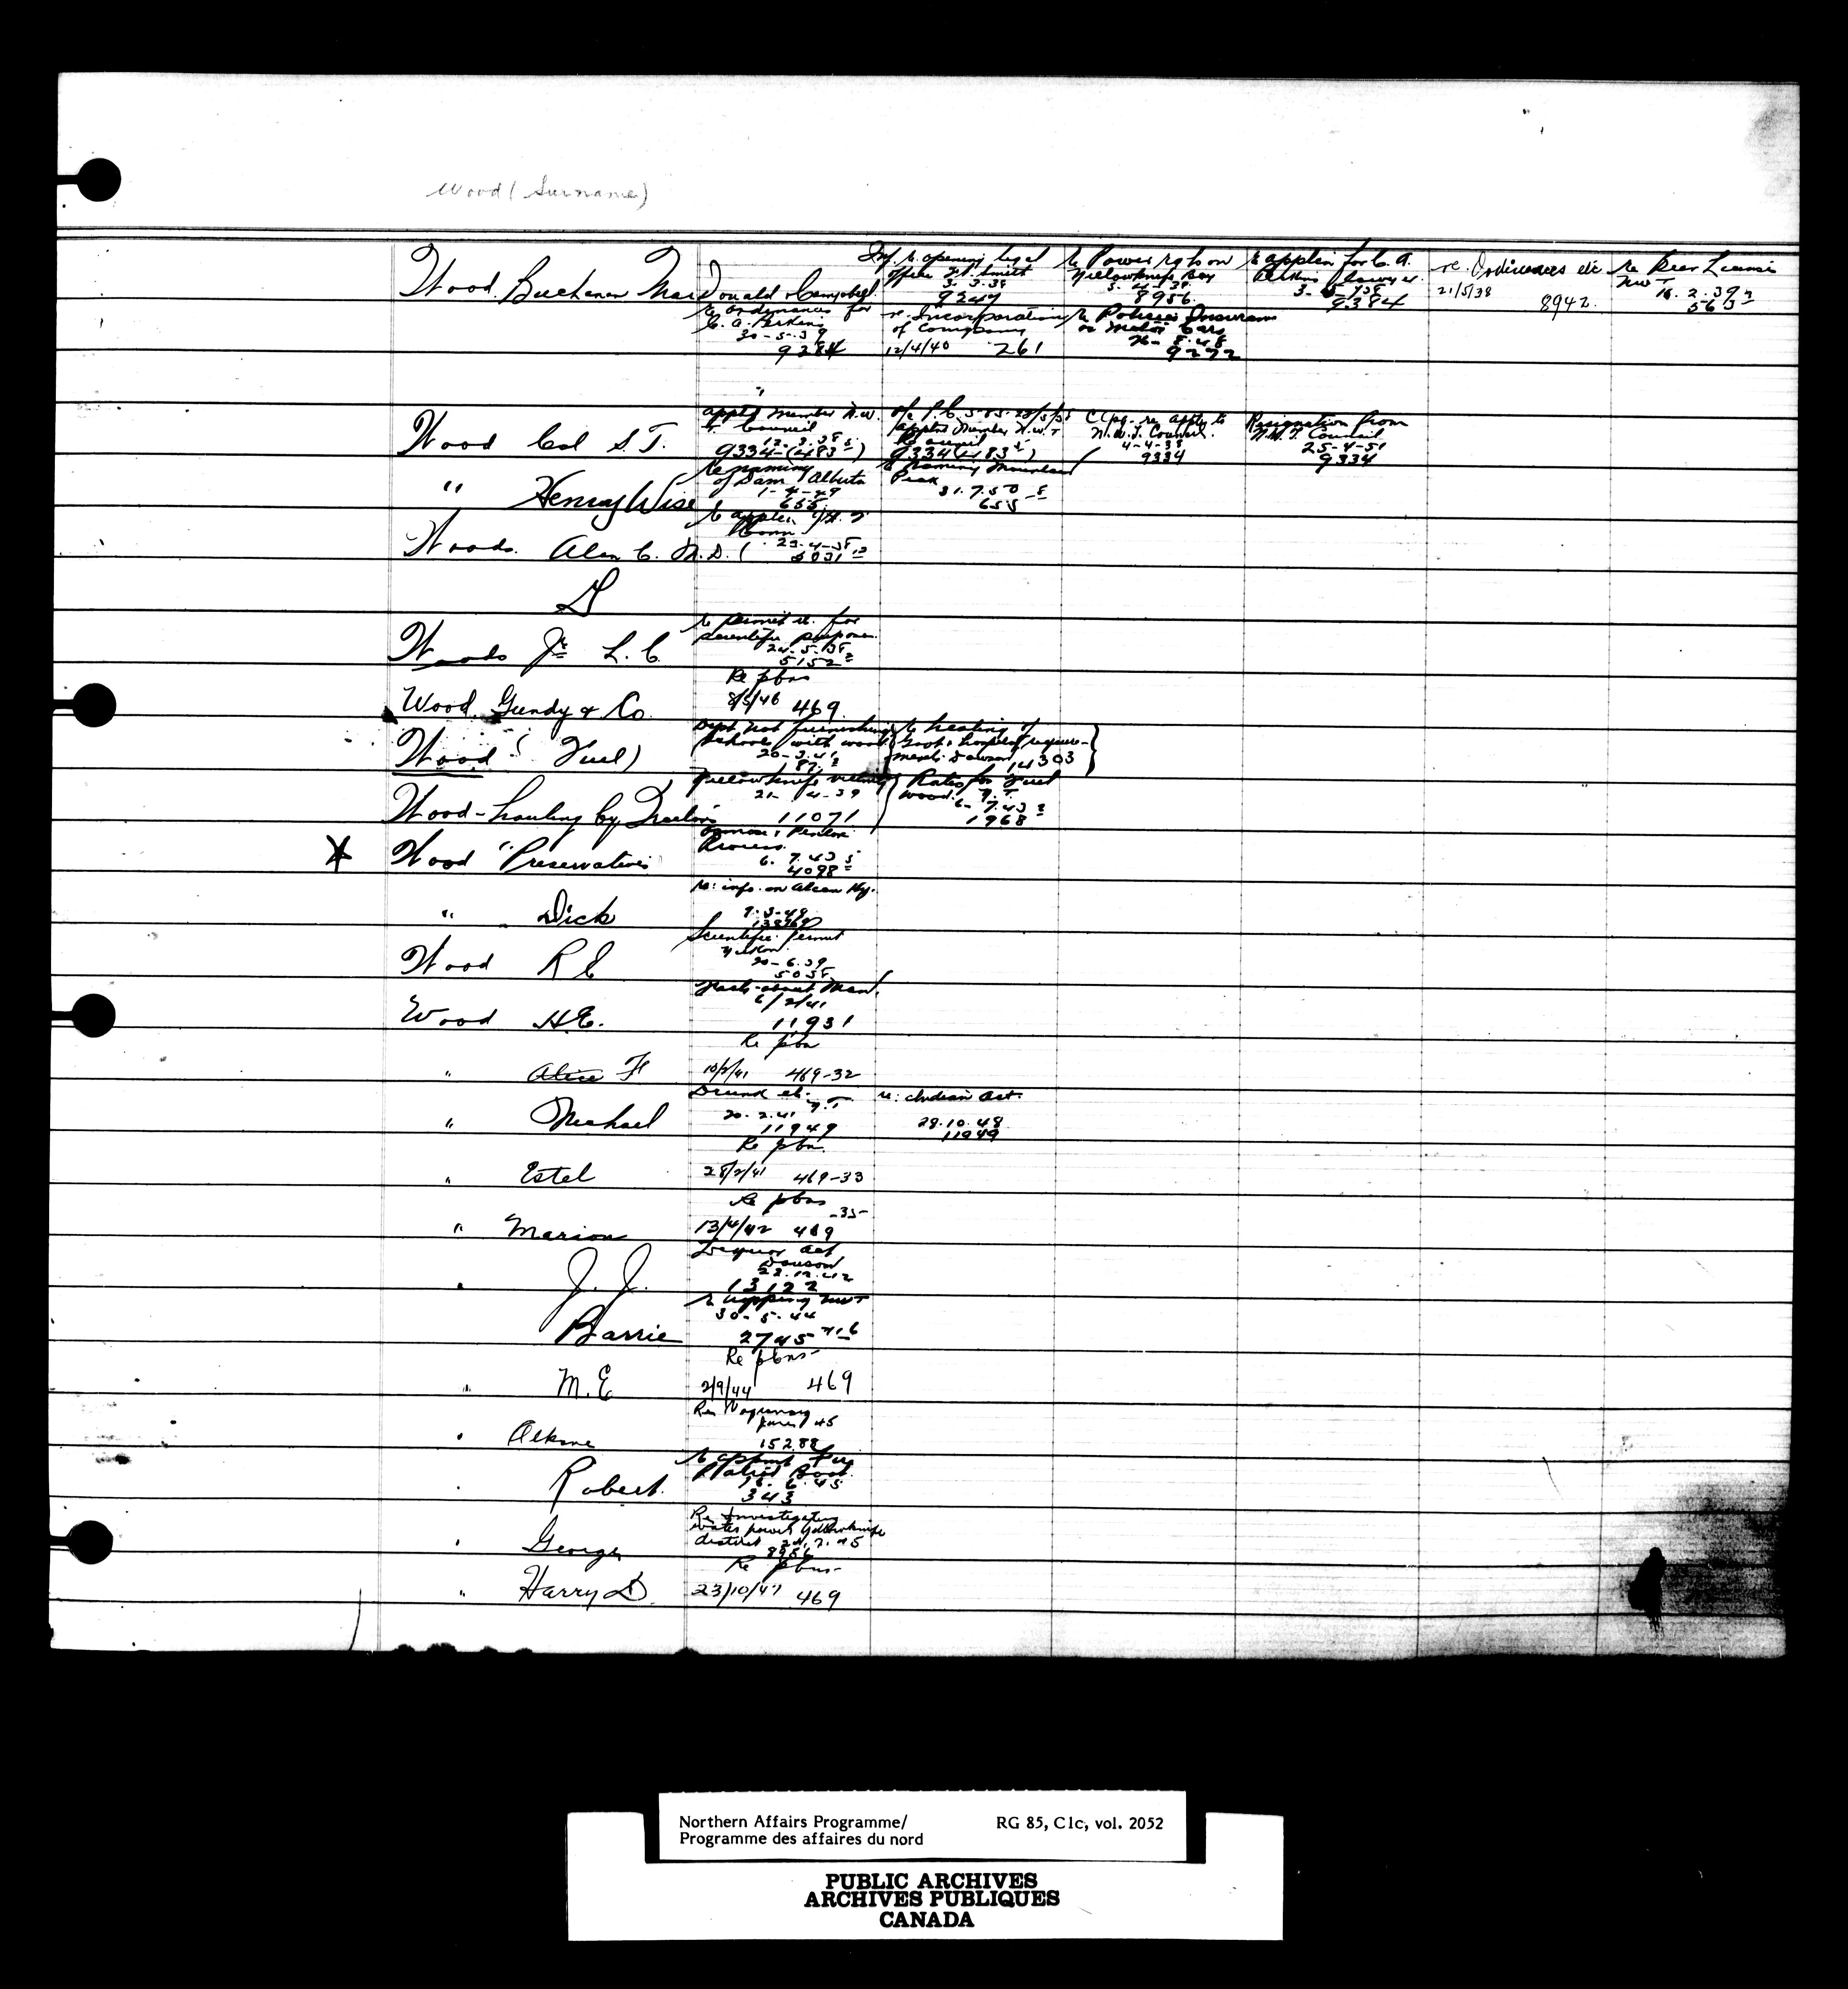 Wood (Surname)
Wood, Buchanan Mac Donald & Campbell.
Inf. re opening legal
office Ft. Smith
3. 3. 38
9247
re Power rights on
Yellowknife Bay
8956
re applen for C. A.
Perkins lawyer
9384
re. Ordinances etc
21/5/38
8942
re Beer License
NWT
16. 2. 39
563
re ordinances for
C. A. Perkins
30-5-39
9384
re. Incorporation
of Company
12/4/40 261
re Policies Insurance
on Motor Cars
9272
Wood Col S. T.
appt'd member N.W.
T. Council
12. 3. 38
9334-(483)
appt'd Member N.W.T
Council
9334 (483)
re. appt to
N.W.T. Council.
4-4-38
9334
Resignation from
N.W.T. Council
25-4-51
9334
" Henry Wise
re naming
of Dam Alberta
1-4-49
655
re naming Mountain
Peak
31.7.50
655
Woods. Alan C. M.D.
5031
D
Woods Jr L. C.
re Permit for
scientific purposes
24.5.38
5152
Wood, Gundy & Co.
Re pbns
8/5/46 469
Wood (Fuel)
Dept not furnishing
schools with wood
20-3-41
re heating of
Govt & hospital require-
ments Dawson 14303
Wood-hauling by Tractors
Yellowknife vicinity
21-4-39
11071
Rates for Fuel
wood Y.T.
6-7.43
1968
Wood "Preservatives"
Process.
6. 7. 43
4098
" Dick
re: info. on Alcan Hy.
9-3-49
Wood R E
Scientific permit
Yukon
20-6.39
5058
Wood H.E.
6/2/41
11931
" Alice F
Re pbn
10/2/41 469-32
" Michael
Drunk etc. Y.T
20. 2. 41
11949
re: Indian Act.
28.10.48
11949
" Estel
Re pbn.
28/2/41 469-33
" Marion
Re pbns
-35-
13/4/42 469
" J. J.
Liquor Act
Dawson
22.12.42
13122
Barrie
re trapping NWT
30-5-44
2745
" M. E
Re pbns
2/9/44 469
"
Re Vagrancy
15288
" Robert.
re appmt
18. 6. 45
343
" George
Re Investigating
water power Yellowknife
district
8956
" Harry D.
Re pbns
23/10/47 469
Northern Affairs Programme/
Programme des affaires du nord
RG 85, C1c, vol. 2052
PUBLIC ARCHIVES
ARCHIVES PUBLIQUES
CANADA